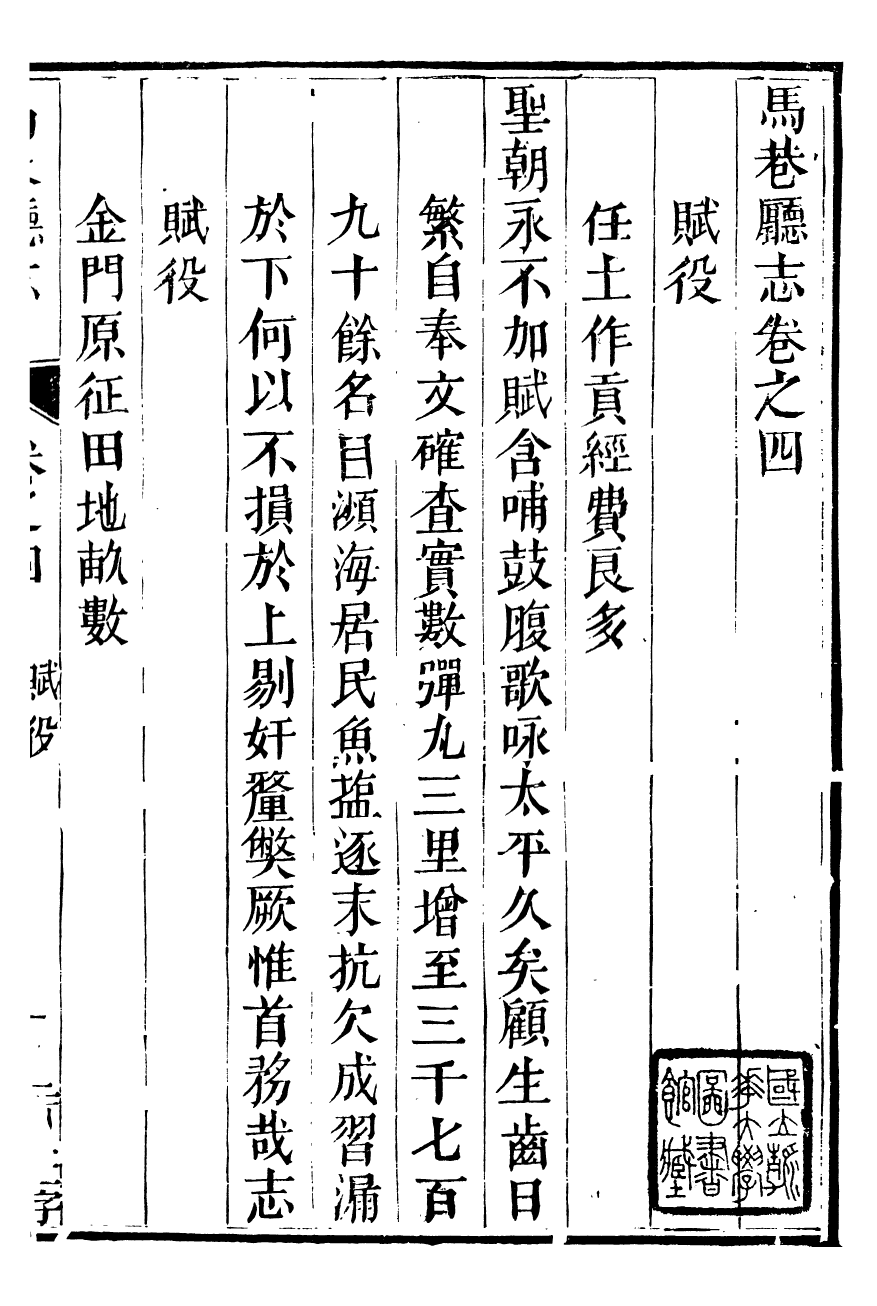 馬巷廳志卷之四
賦役
任土作貢經費良多
聖朝永不加賦含哺鼓腹歌咏太平久矣顧生齒日
繁自奉文確查實數彈丸三里增至三千七百
九十餘名目瀕海居民魚塩逐末抗欠成習漏
於下何以不損於上剔奸釐獘厥惟首務哉志
賦役
金門原征田地畝數
賦役
國立
大學
圖書
館藏